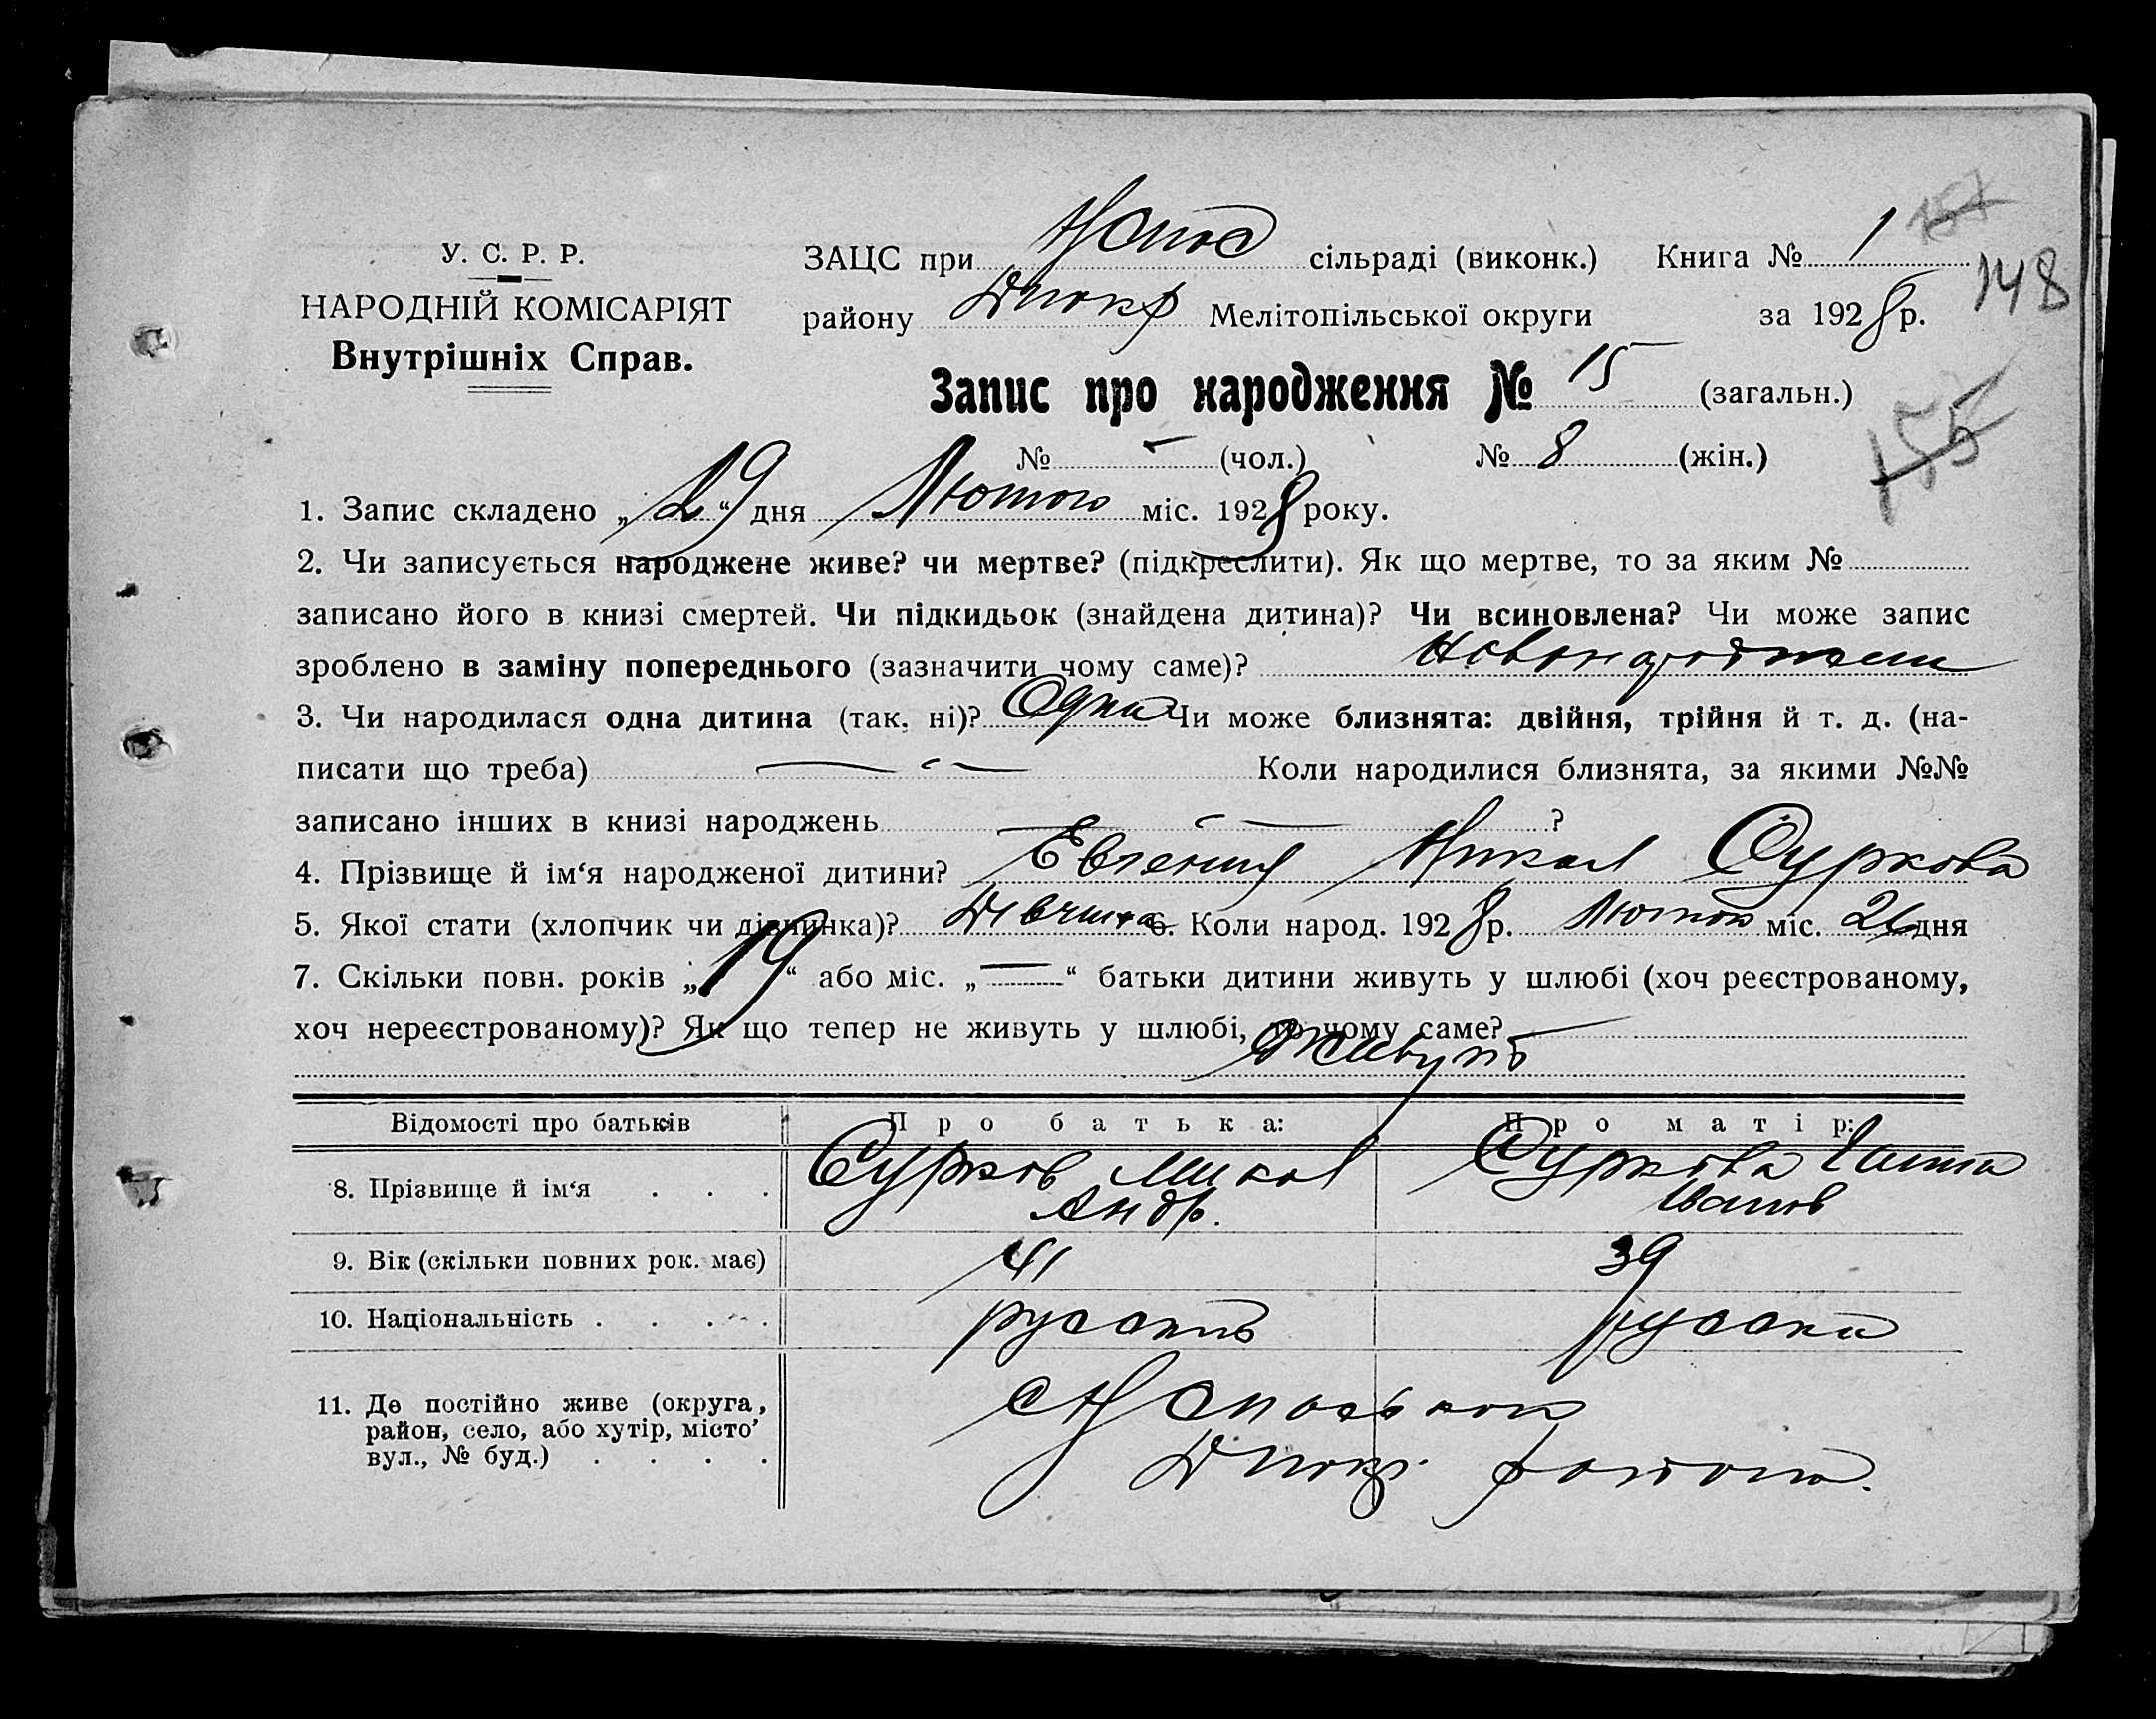 151
У. С. Р. Р.
НАРОДНІЙ КОМІСАРІЯТ
Внутрішніх Справ.
ЗАЦС при сільраді (виконк.) Книга № 1
148
району Мелітопільської округи за 1928 р.
Запис про народження № 15 (загальн.)
155
№ - (чол.) № 8 (жін.)
1. Запис складено „29“ дня Лютого міс. 1928 року.
2. Чи записується народжене живе? чи мертве? (підкреслити). Як що мертве, то за яким №
записано його в книзі смертей. Чи підкидьок (знайдена дитина)? Чи всиновлена? Чи може запис
зроблено в заміну попереднього (зазначити чому саме)?
3. Чи народилася одна дитина (так, ні)? Одна Чи може близнята: двійня, трійня й т. д. (на-
писати що треба) — " — Коли народилися близнята, за якими №№
записано інших в книзі народжень — " — ?
4. Прізвище й ім‘я народженої дитини? Евгения Никол Суркова
5. Якої стати (хлопчик чи дівчинка)? Дівчинка 6. Коли народ. 1928 р. Лютого міс. дня
7. Скільки повн. років „19“ або міс. „—“ батьки дитини живуть у шлюбі (хоч реєстрованому,
хоч нереєстрованому)? Як що тепер не живуть у шлюбі, то чому саме?
Живуть
Відомості про батьків Про батька: Про матір:
8. Прізвище й ім‘я . . . Сурков Микол Суркова Ганна
Андр. Иванов
9. Вік (скільки повних рок. має) 41 39
10. Національність . . . . русский русска
11. Де постійно живе (округа,
район, село, або хутір, місто
вул., № буд.) . . . .
района.